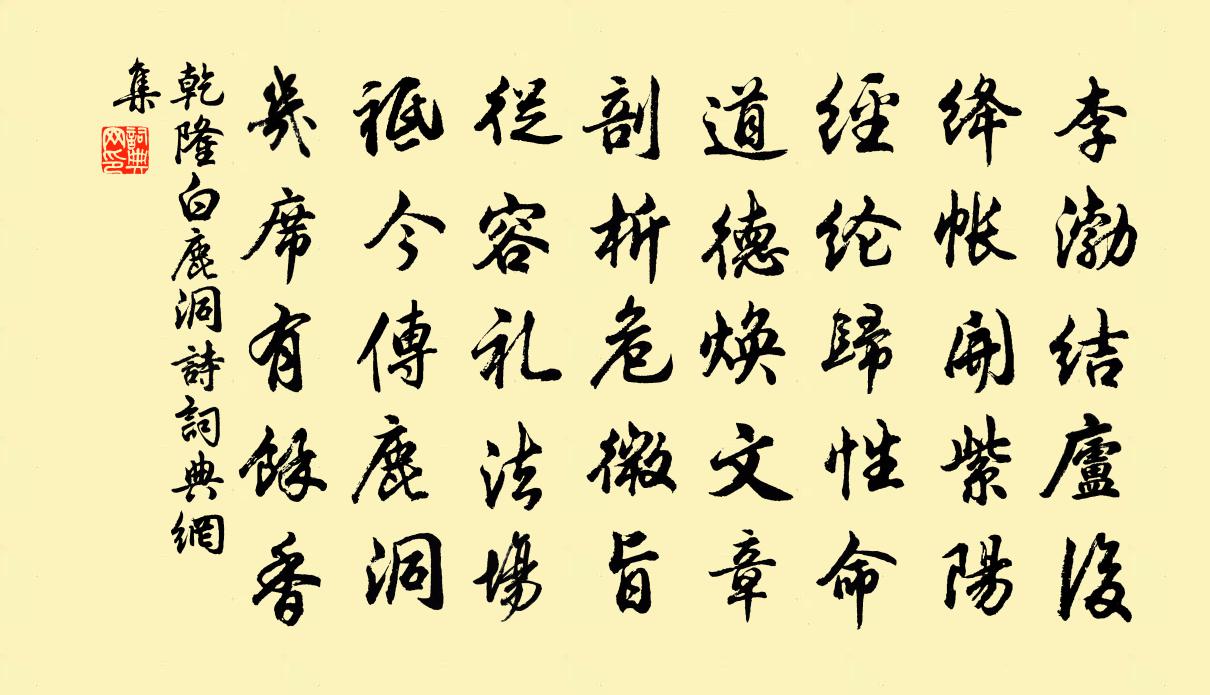 李渤结廬後
绛帐開紫陽
經纶歸性命
道德焕文章
剖析危微旨
從容礼法場
祗今傳鹿洞
幾席有餘香
乾隆白鹿洞詩詞典網
集
詞典网印